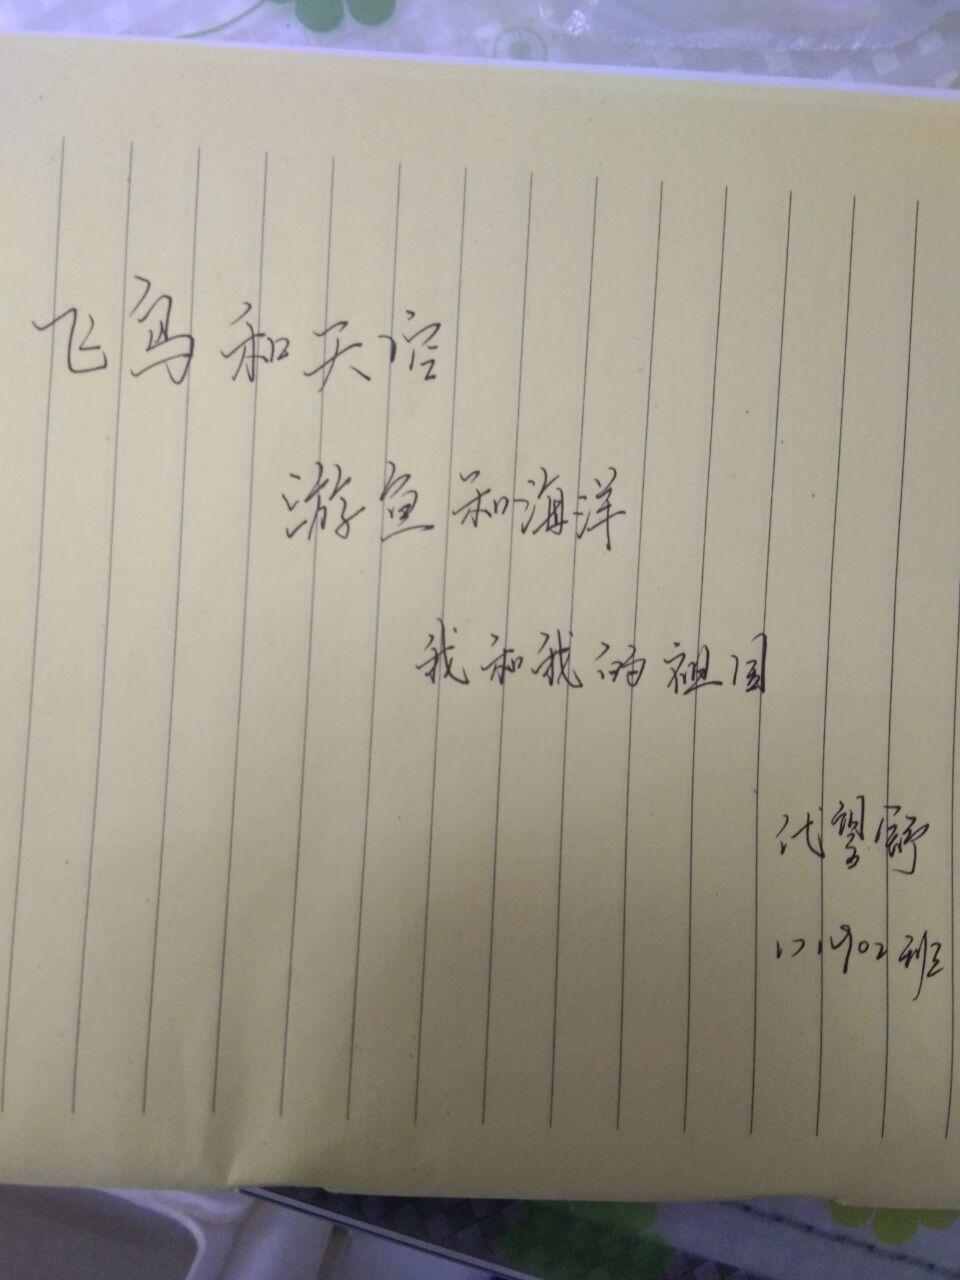 飞鸟和天空
游鱼和海洋
我和我的祖国
代望野
171902班